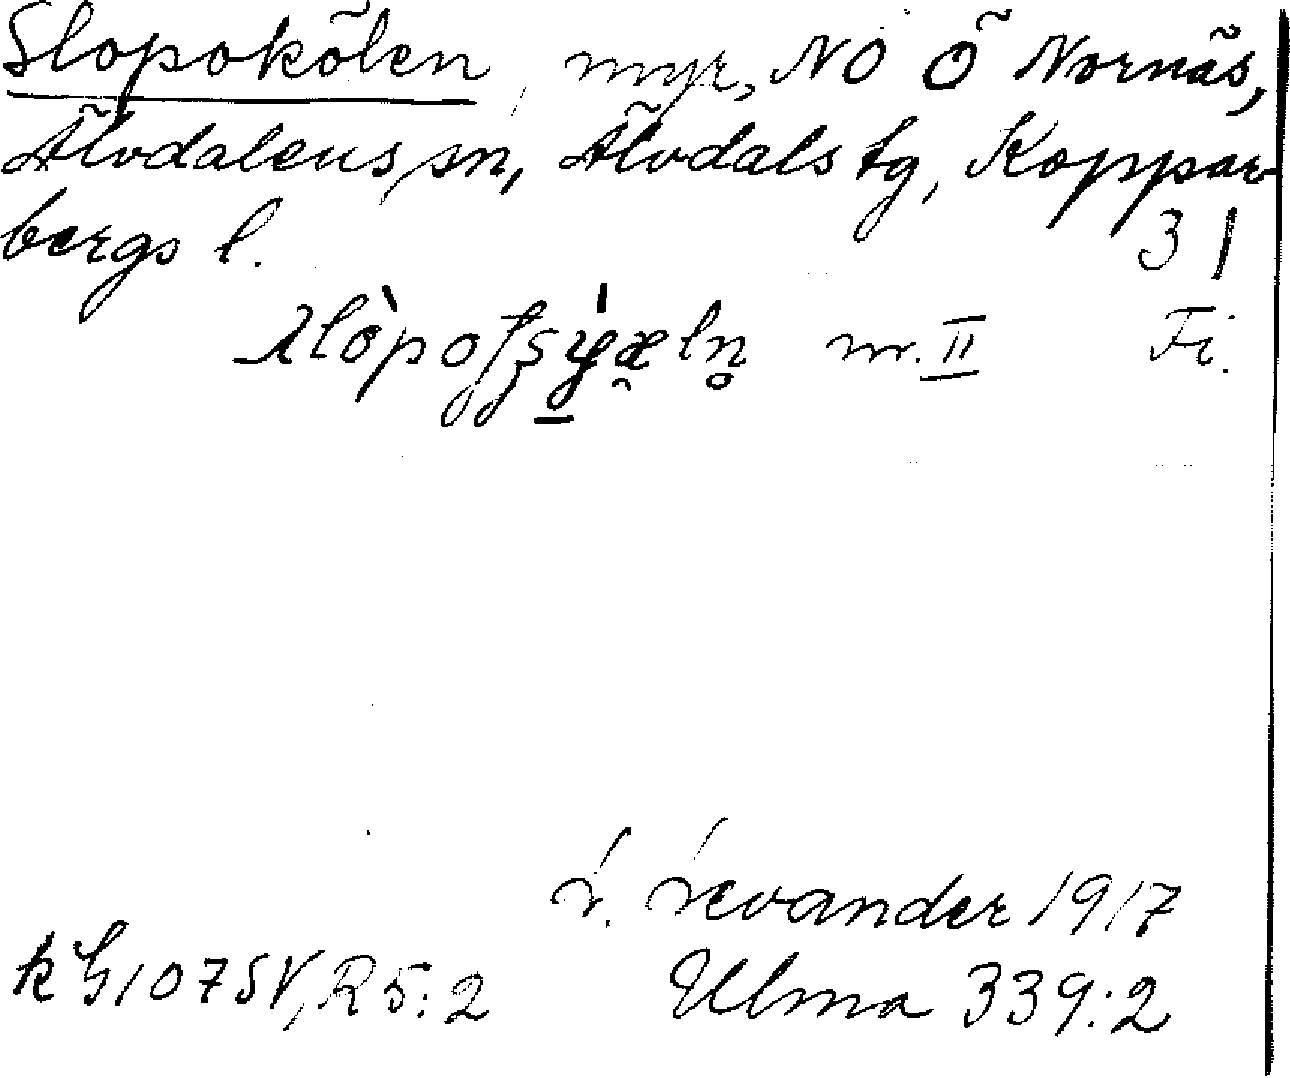 Slopokölen, myr, NO Ö Nornäs,
Älvdalens sn, Älvdals tg, Koppar-
bergs l. 31
m. II Fi.
L. Levander 1917
k G107SV, R5:2 Ulma 339:2